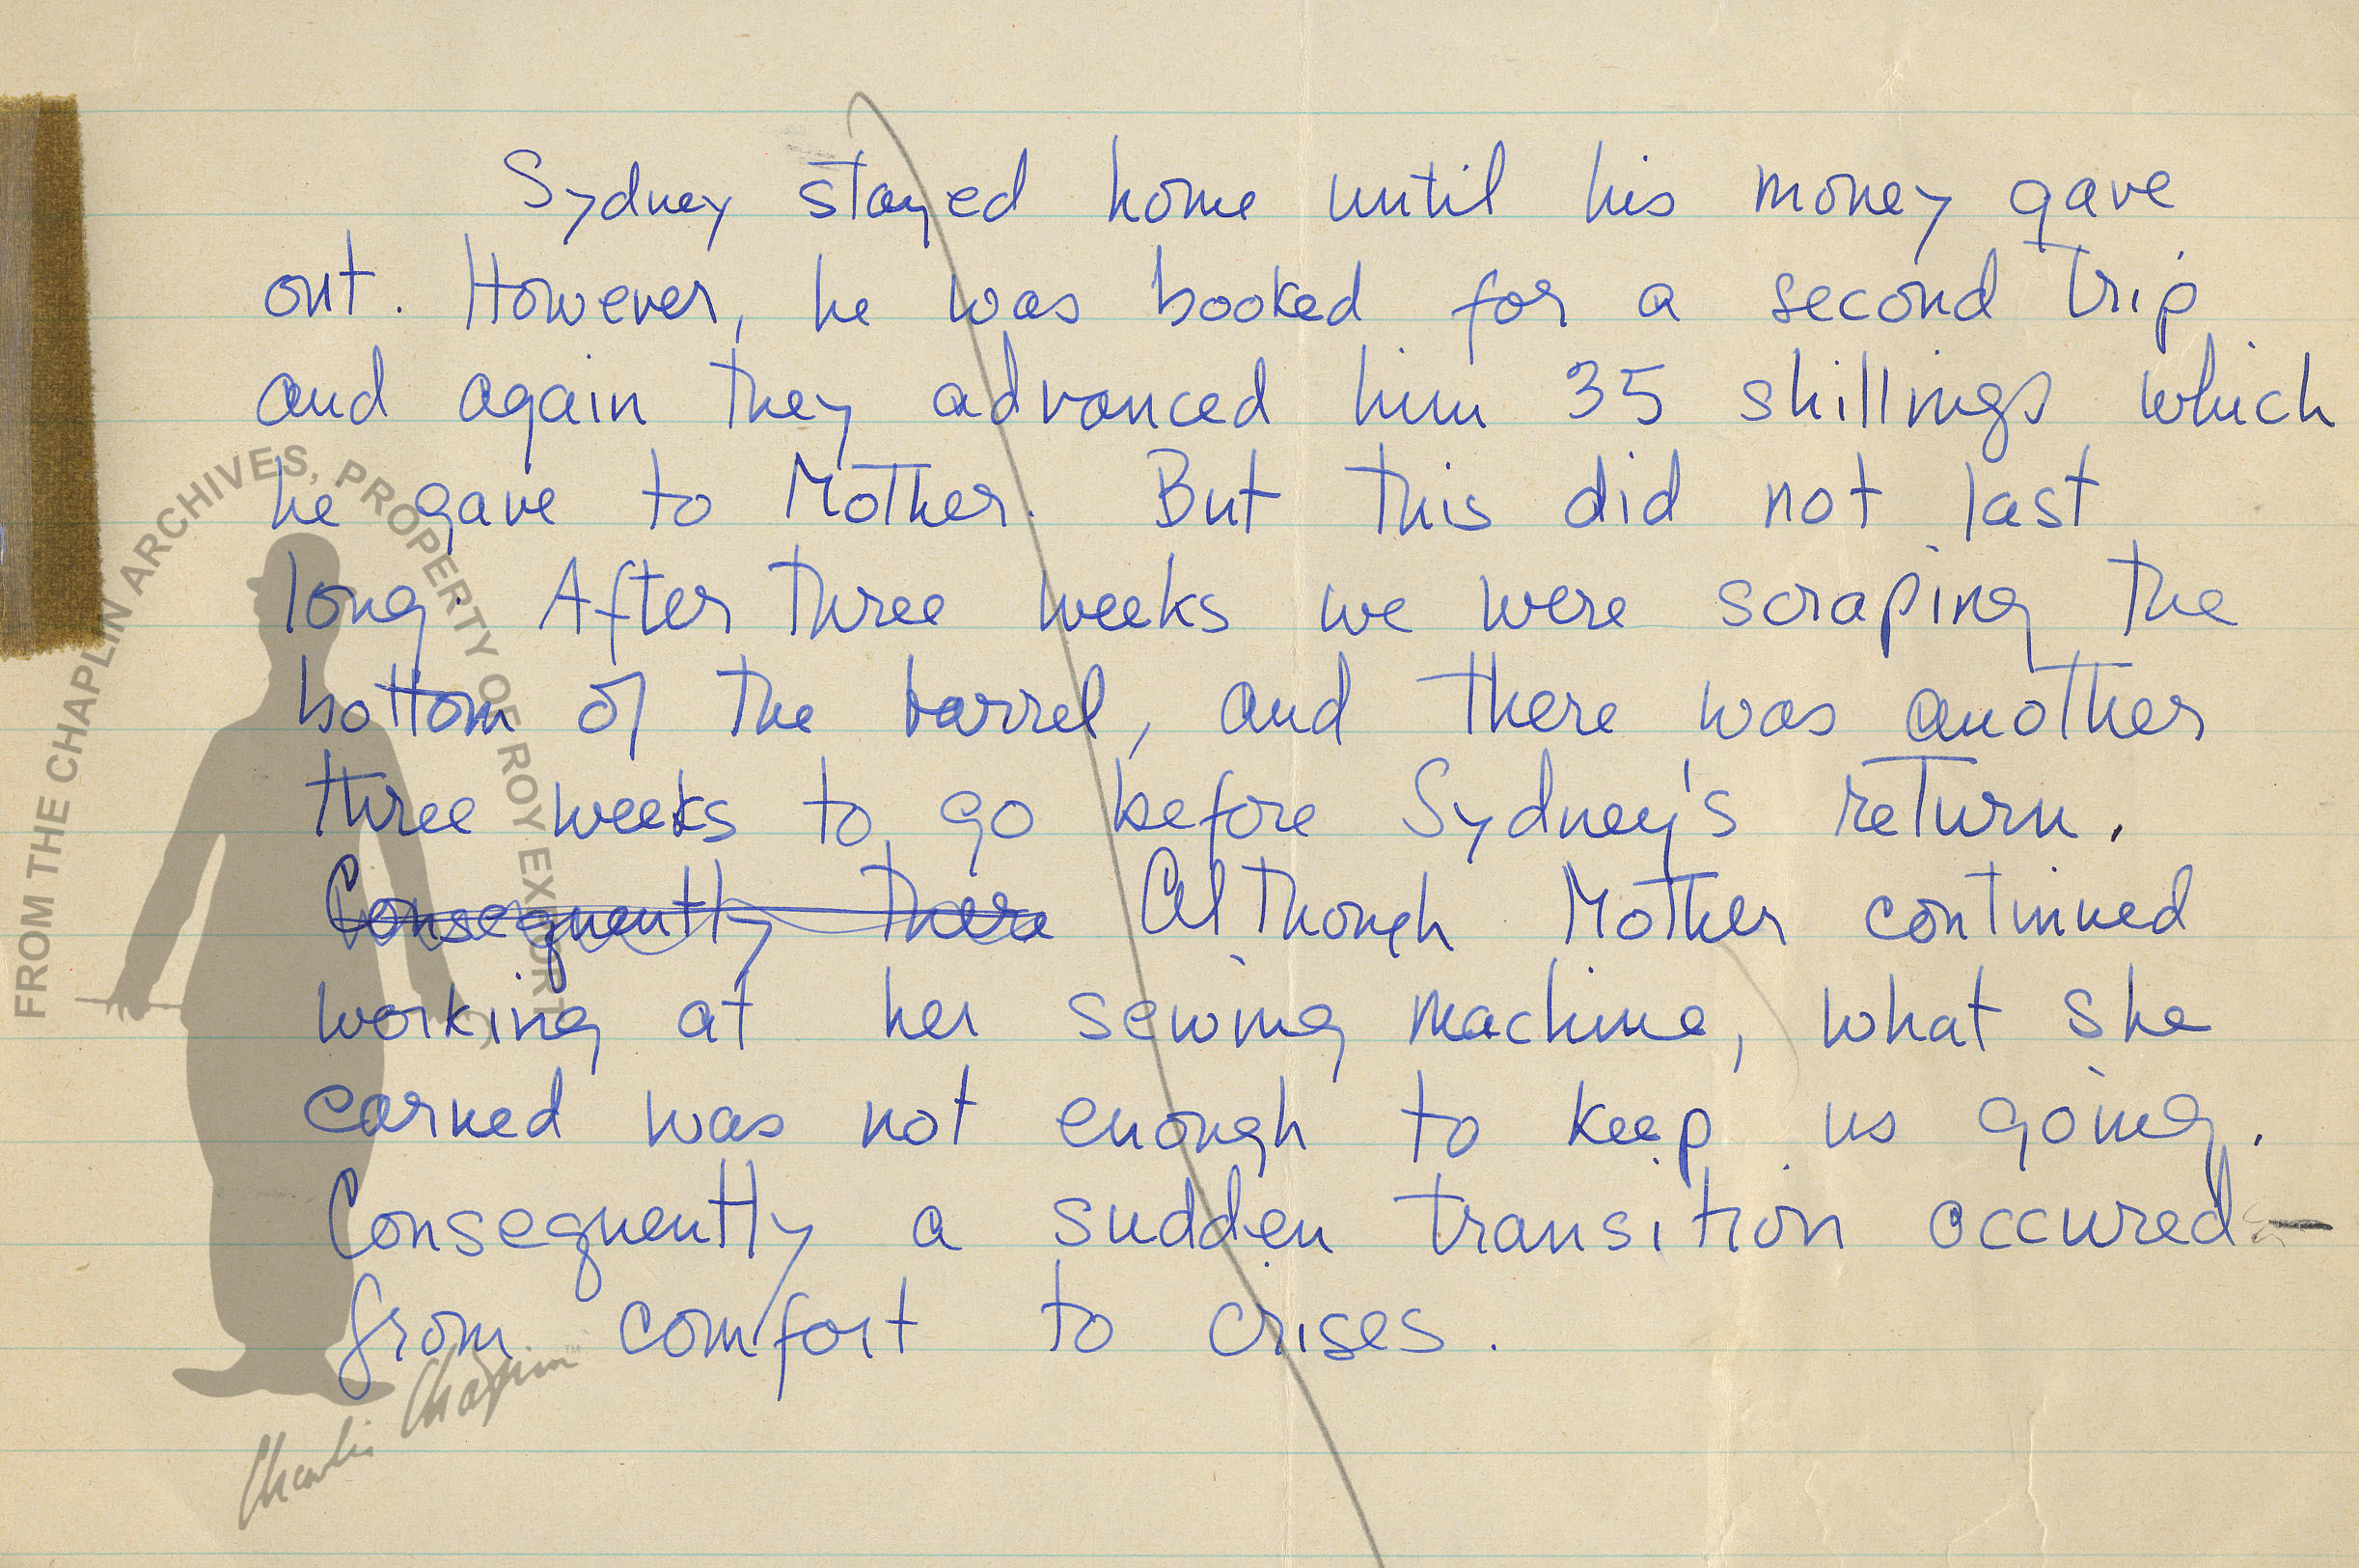 Sydney stayed home until his money gave
out. However, he was booked for a second trip
and again they advanced him 35 shillings which
he gave to Mother. But this did not last
long. After three weeks we were scraping the
bottom of the barrel, and there was another
three weeks to go before Sydney's return.
Consequently there Although Mother continued
working at her sewing machine, what she
earned was not enough to keep us going.
Consequently a sudden transition occured –
from comfort to crises.
FROM THE CHAPLIN ARCHIVES, PROPERTY OF ROY EXPORT
Charlie Chaplin™